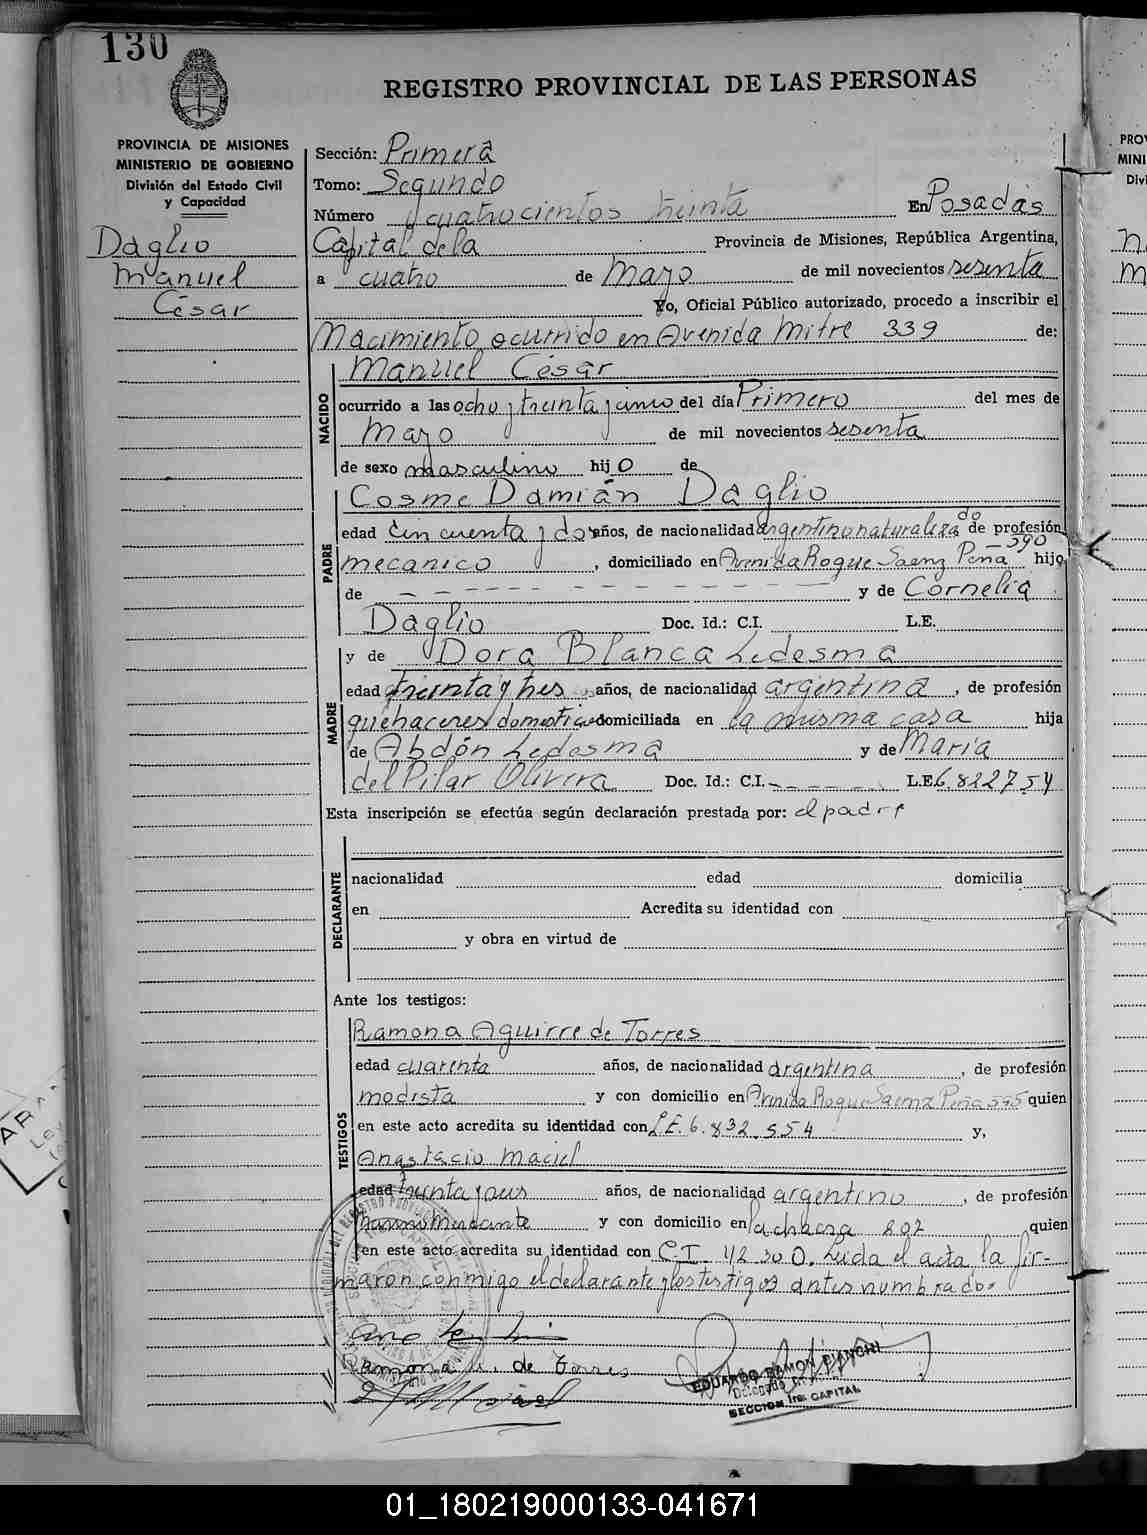 130
REGISTRO PROVINCIAL DE LAS PERSONAS
PROVINCIA DE MISIONES
MINISTERIO DE GOBIERNO
División del Estado Civil
y Capacidad
Daglio
Manuel
César
Sección: Primera
Tomo: Segundo
Número cuatrocientos treinta En Posadas
Capital de la Provincia de Misiones, República Argentina,
a cuatro de Mayo de mil novecientos sesenta
Yo, Oficial Público autorizado, procedo a inscribir el
Nacimiento ocurrido en Avenida Mitre 339 de:
NACIDO
Manuel César
ocurrido a las ocho y treinta y cinco del día Primero del mes de
Mayo de mil novecientos sesenta
de sexo masculino hijo de
PADRE
Cosme Damián Daglio
edad cincuenta y dos años, de nacionalidad argentino naturalizado de profesión
mecanico, domiciliado en Avenida Roque Saenz Peña 590 hijo
de - - - - - - - - - - y de Cornelia
Daglio Doc. Id.: C.I. L.E.
MADRE
y de Dora Blanca Ledesma
edad treinta y tres años, de nacionalidad argentina, de profesión
quehaceres domesticos domiciliada en la misma casa hija
de Abdón Ledesma y de María
del Pilar Olivera Doc. Id.: C.I. - - - - - L.E. 6.822754
Esta inscripción se efectúa según declaración prestada por: el padre
DECLARANTE
nacionalidad edad domicilia
en Acredita su identidad con
y obra en virtud de
Ante los testigos:
TESTIGOS
Ramona Aguirre de Torres
edad cuarenta años, de nacionalidad argentina, de profesión
modista y con domicilio en Avenida Roque Saenz Peña 595 quien
en este acto acredita su identidad con L.E. 6.832.554 y,
Anastacio Maciel
edad treinta y seis años, de nacionalidad argentino, de profesión
marino mercante y con domicilio en la chacra 207 quien
en este acto acredita su identidad con C.I. 42.300. Leida el acta la fir-
maron conmigo el declarante y los testigos antes nombrados
Ramona A. de Torres
EDUARDO RAMON BIANCHI
Delegado
SECCION 1ra. CAPITAL
01_180219000133-041671